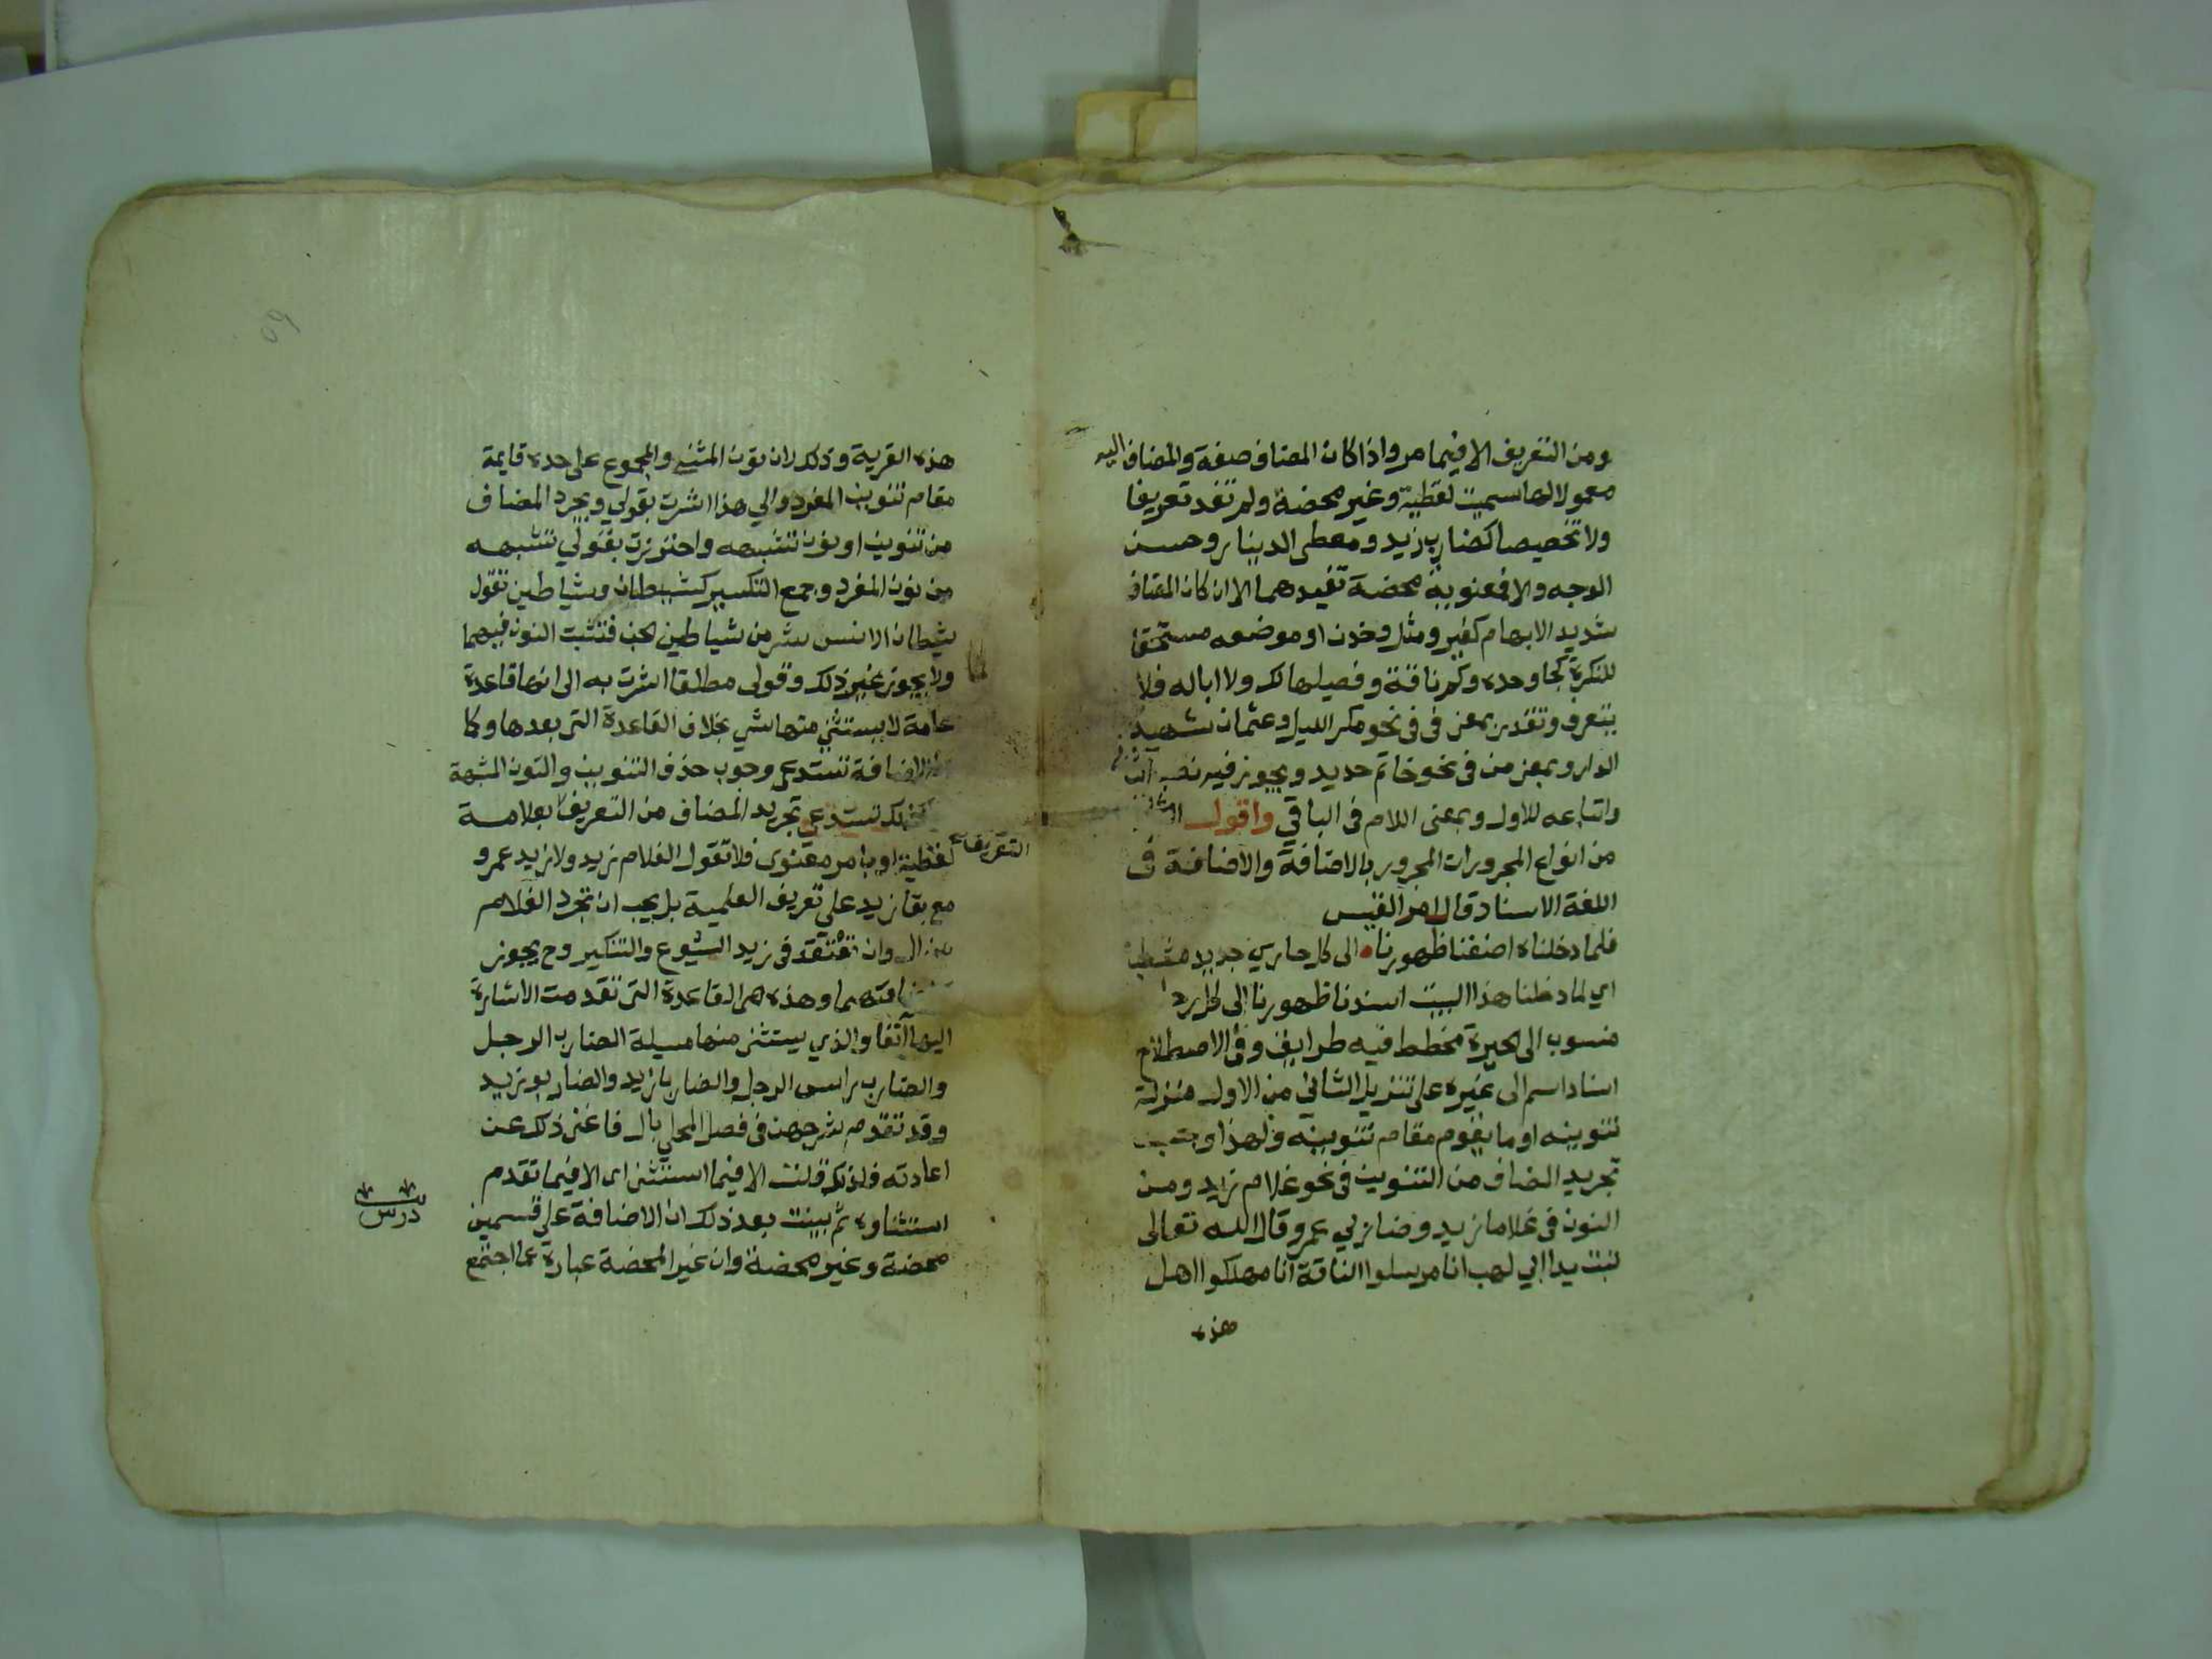 ومن التعريف الا فيما مر واذا كان المضاف صفة والمضاف اليه
معمولا لها سميت لفظية وغير محضة ولم تفد تعريفا
ولا تخصيصا كضارب زيد ومعطى الدينار وحسن
الوجه والا فمعنوية محضة تفيدهما الا ان كان المضاف
شديد الابهام كغير ومثل وخدن او موضعه مستحقا
للنكرة كجا وحده وكم ناقة وفصيلها لك ولا ابا له فلا
يتعرف وتقدر بمعنى فى فى نحو مكر الليل وعثمان شهيد
الدار وبمعنى من فى نحو خاتم حديد ويجوز فيه نصب الثاني
واتباعه للاول وبمعنى اللام فى الباقي واقول الثاني
من انواع المجرورات المجرور بالاضافة والاضافة فى
اللغة الاسناد قال امر القيس
فلما دخلناه اضفنا ظهورنا الى كل حاري جديد مشطب
اي لما دخلنا هذا البيت اسندنا ظهورنا الى كل
منسوب الى الحيرة مخطط فيه طرايق وفى الاصطلاح
اسناد اسم الى غيره على تنزيل الثاني من الاول منزلة
تنوينه او ما يقوم مقام تنوينه ولهذا وجب
تجريد المضاف من التنوين فى نحو غلام زيد ومن
النون فى غلاما زيد وضاربي عمرو قال الله تعالى
تبت يدا ابي لهب انا مرسلوا الناقة انا مهلكوا اهل
هذه
هذه القرية وذلك لان نون المثنى والمجموع على حده قايمة
مقام تنوين المفرد والي هذا اشرت بقولي ويجرد المضاف
من تنوين او نون تشبهه واحترزت بقولي تشبهه
من نون المفرد وجمع التكسير كشيطان وشياطين تقول
شيطان الانس شر من شياطين الجن فتثبت النون فيهما
ولا يجوز غير ذلك وقولى مطلقا اشرت به الى انها قاعدة
عامة لا يستثنى منها شي بخلاف القاعدة التى بعدها وكما
ان الاضافة تستدعى وجوب حذف التنوين والنون المشبهة
كذلك تستدعى تجريد المضاف من التعريف بعلامة
التعريف
لفظية او بامر معنوى فلا تقول الغلام زيد ولا زيد عمرو
مع بقا زيد على تعريف العلمية بل يجب ان تجرد الغلام
من ال وان تعتقد فى زيد الشيوع والتنكير وح يجوز
اضافتهما وهذه هى القاعدة التى تقدمت الاشارة
اليها آنفا والذي يستثنى منها مسيلة الضارب الرجل
والضارب راس الرجل والضاربا زيد والضاربو زيد
وقد تقدم شرحهن فى فصل المحلى بال فاغنى ذلك عن
اعادته فلذلك قلت الا فيما استثنى اى الا فيما تقدم
استثناوه ثم بينت بعد ذلك ان الاضافة على قسمين
درس
محضة وغير محضة وان غير المحضة عبارة عما اجتمع